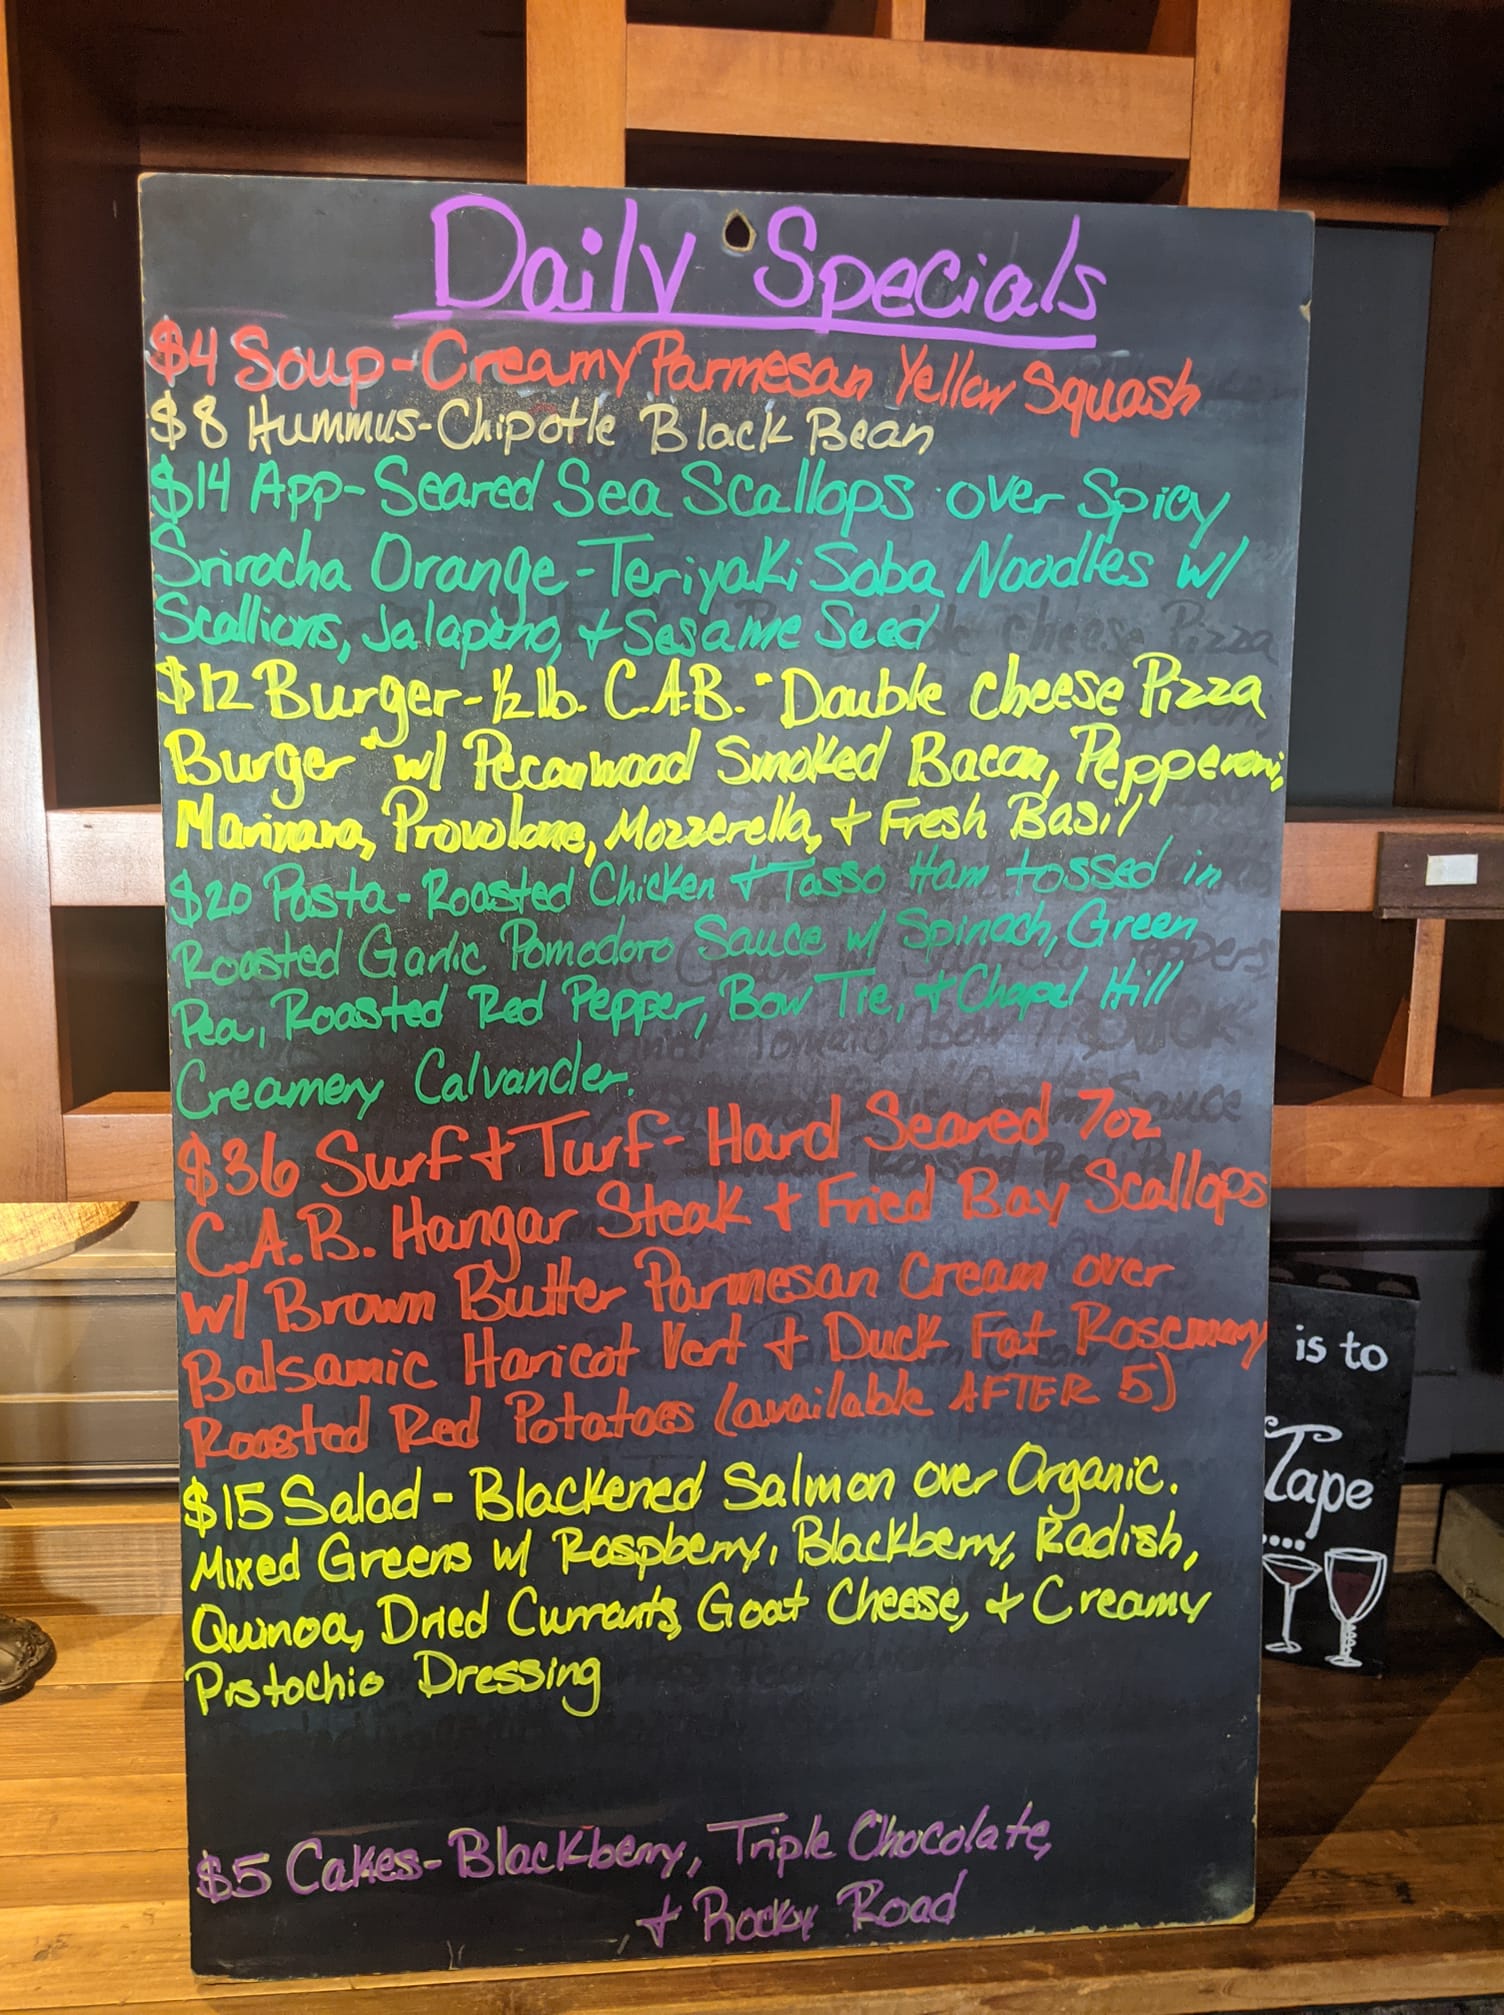 Daily Specials
$4 Soup-Creamy Parmesan Yellow Squash
$8 Hummus-Chipotle Black Bean
$14 App-Seared Sea Scallops over Spicy
Srirocha Orange-Teriyaki Soba Noodles w/
Scallions, Jalapeño, + Sesame Seed
$12 Burger-1/2 lb. C.A.B. "Double Cheese Pizza
Burger" w/ Pecanwood Smoked Bacon, Pepperoni,
Marinara, Provolone, Mozzerella, + Fresh Basil
$20 Pasta-Roasted Chicken + Tasso Ham tossed in
Roasted Garlic Pomodoro Sauce w/ Spinach, Green
Pea, Roasted Red Pepper, Bow Tie, + Chapel Hill
Creamery Calvander.
$36 Surf + Turf- Hard Seared 7oz
C.A.B. Hangar Steak + Fried Bay Scallops
w/ Brown Butter Parmesan Cream over
Balsamic Haricot Vert + Duck Fat Rosemary
Roasted Red Potatoes (available AFTER 5)
$15 Salad - Blackened Salmon over Organic.
Mixed Greens w/ Raspberry, Blackberry, Radish,
Quinoa, Dried Currants, Goat Cheese, + Creamy
Pistachio Dressing
$5 Cakes-Blackberry, Triple Chocolate,
+ Rocky Road
is to
Tape